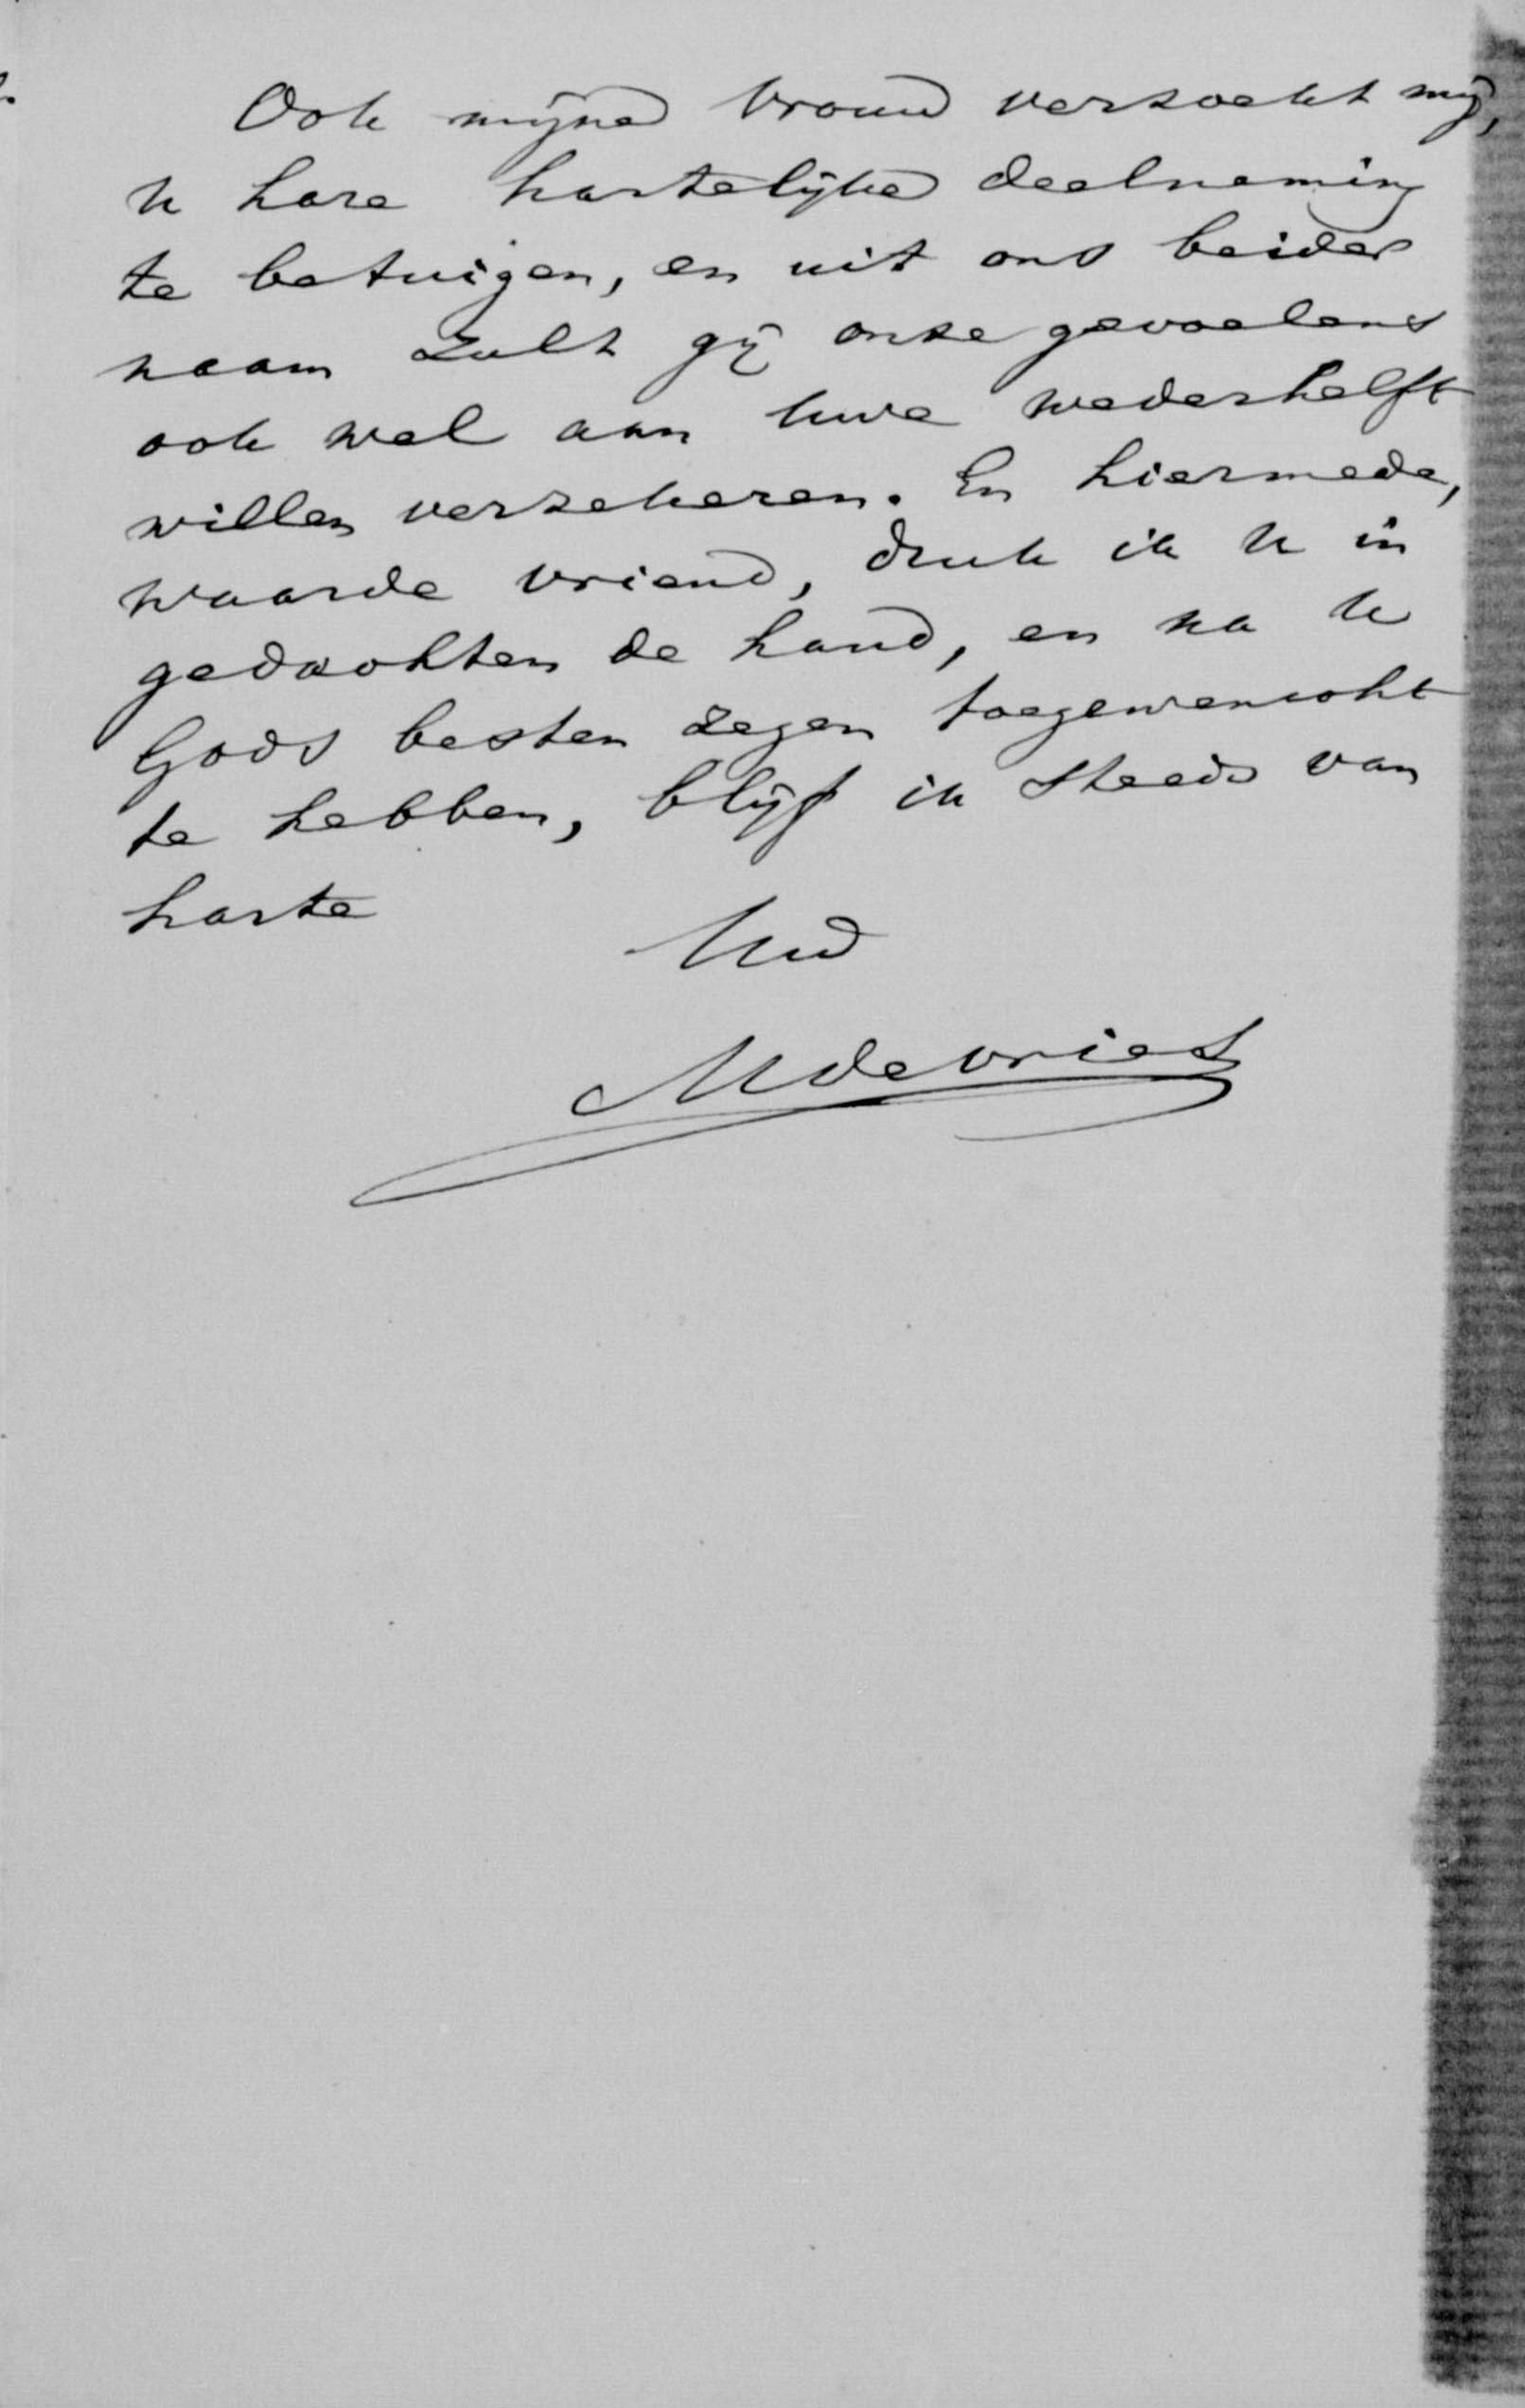 Ook mijne vrouw verzoekt mij,
U hare hartelijke deelneming
te betuigen, en uit ons beider
naam zult gij onze gevoelens
ook wel aan Uwe wederhelft
willen verzekeren. En hiermede,
waarde vriend, druk ik U in
gedachten de hand, en na U
Gods besten zegen toegewenscht
te hebben, blijf ik steeds van
harte
Uw
M de Vries